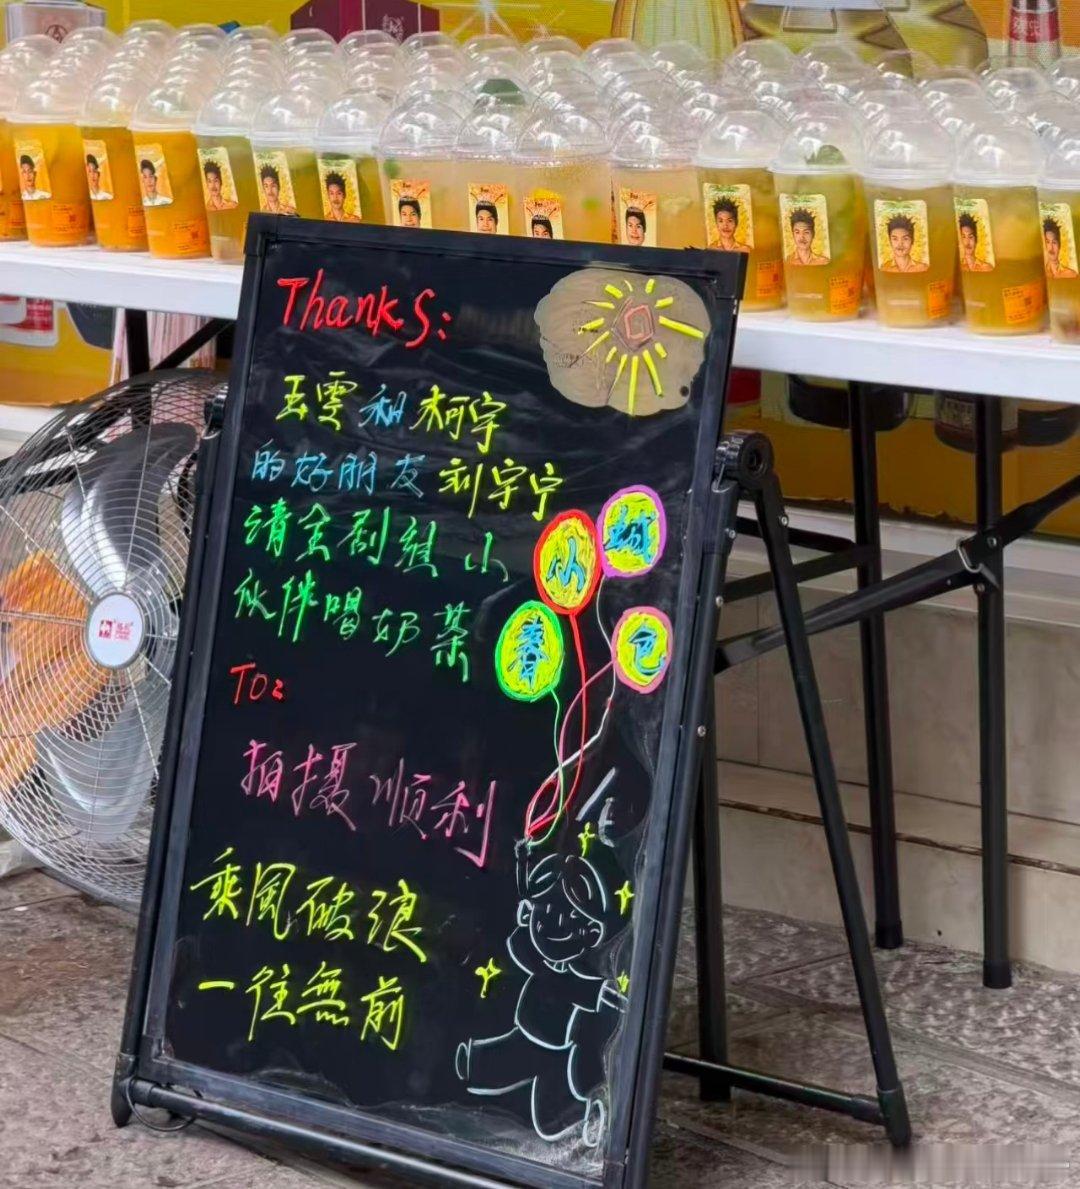 Thanks:
玉雲和柯宇
的好朋友刘宇宁
请全剧组小
伙伴喝奶茶
小
春
包
To:
拍摄顺利
乘風破浪
一往無前